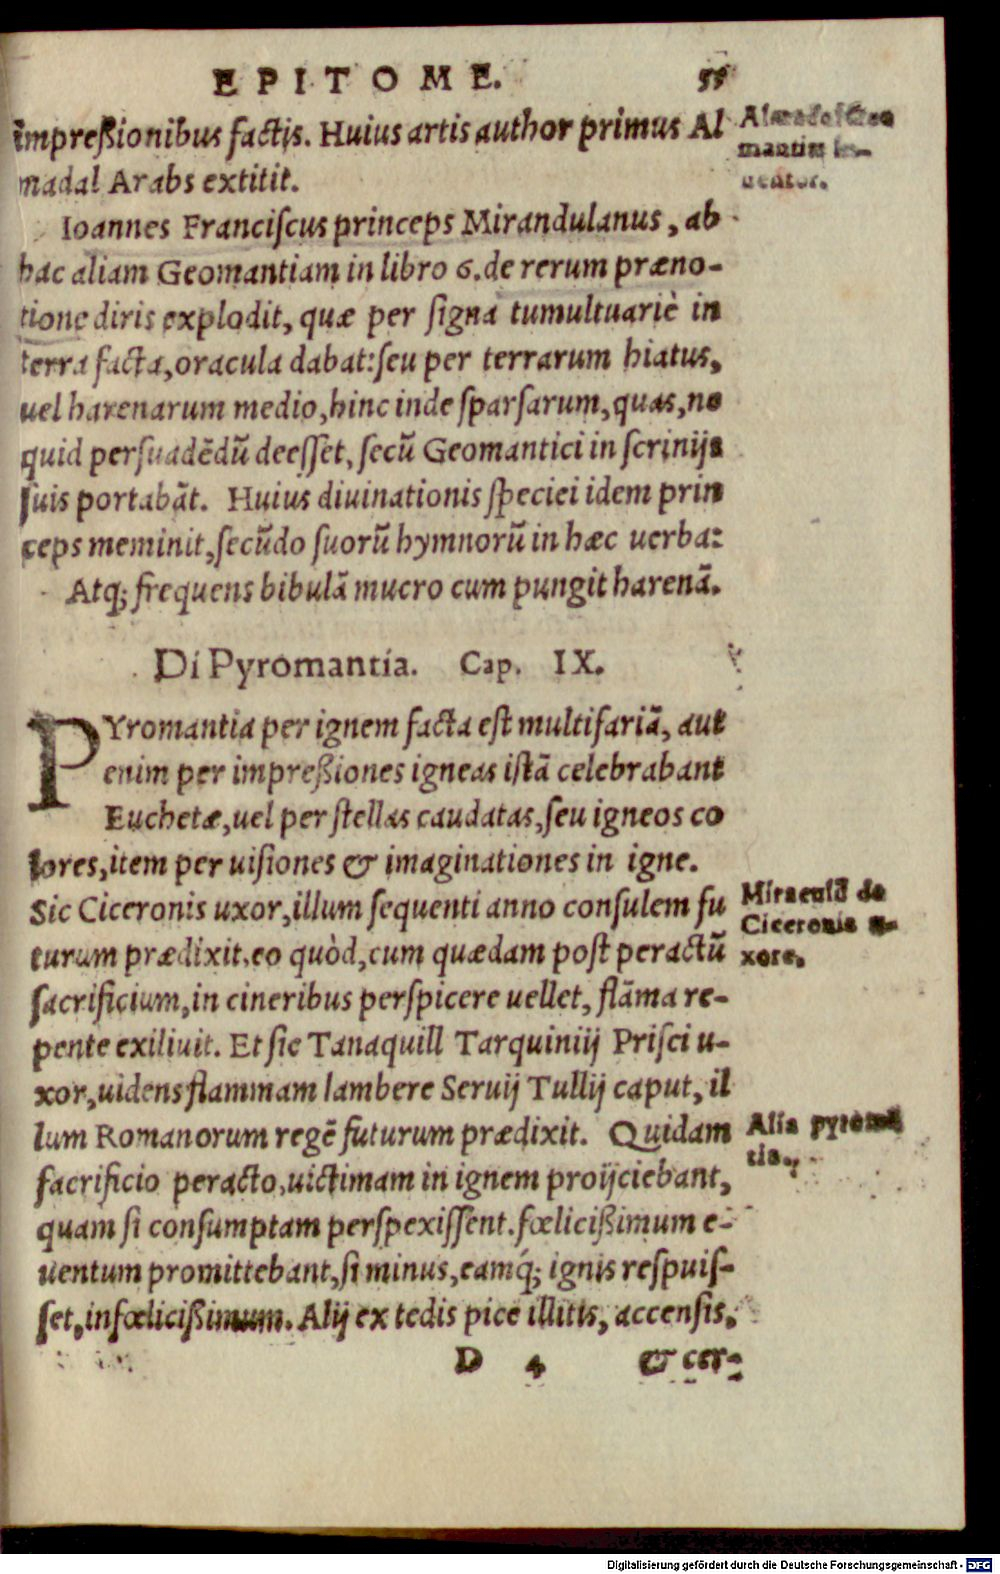 EPITOME. 55
impreßionibus factis. Huius artis author primus Al
madal Arabs extitit.
Almadal Geo
mantiæ in-
uentor.
Ioannes Franciſcus princeps Mirandulanus, ab
hac aliam Geomantiam in libro 6. de rerum præno-
tione diris explodit, quæ per ſigna tumultuariè in
terra facta, oracula dabat: ſeu per terrarum hiatus,
uel harenarum medio, hinc inde ſparſarum, quas, ne
quid perſuadẽdũ deeſſet, ſecũ Geomantici in ſcrinijs
ſuis portabãt. Huius diuinationis ſpeciei idem prin
ceps meminit, ſecũdo ſuorũ hymnorũ in hæc uerba:
Atq; frequens bibulã mucro cum pungit harenã.
Di Pyromantia. Cap. IX.
PYromantia per ignem facta eſt multifariã, aut
enim per impreßiones igneas iſtã celebrabant
Euchetæ, uel per ſtellas caudatas, ſeu igneos co
lores, item per uiſiones & imaginationes in igne.
Sic Ciceronis uxor, illum ſequenti anno conſulem fu
turum prædixit, eo quòd, cum quædam poſt peractũ
ſacrificium, in cineribus perſpicere uellet, flãma re-
pente exiliuit. Et ſic Tanaquill Tarquiniij Priſci u-
xor, uidens flammam lambere Seruij Tullij caput, il
lum Romanorum regẽ futurum prædixit. Quidam
ſacrificio peracto, uictimam in ignem proijciebant,
quam ſi conſumptam perſpexiſſent. fœlicißimum e-
uentum promittebant, ſi minus, eamq́; ignis reſpuiſ-
ſet, infœlicißimum. Alij ex tedis pice illitis, accenſis,
Miraculũ de
Ciceronis u-
xore.
Alia pyromã
tia.
D 4 & cer-
Digitalisierung gefördert durch die Deutsche Forschungsgemeinschaft - DFG